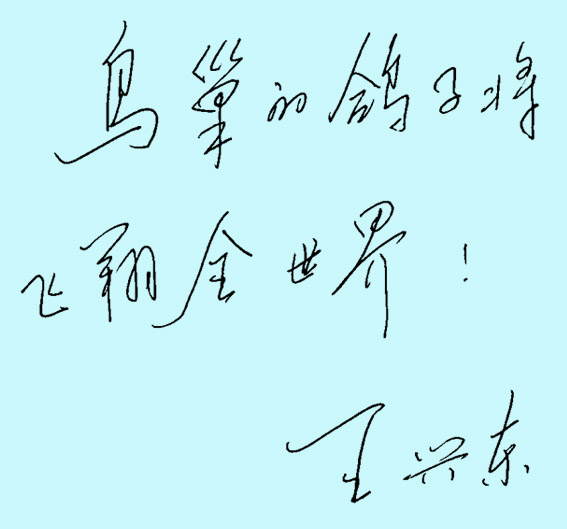 鸟巢的鸽子将
飞翔全世界!
王兴东